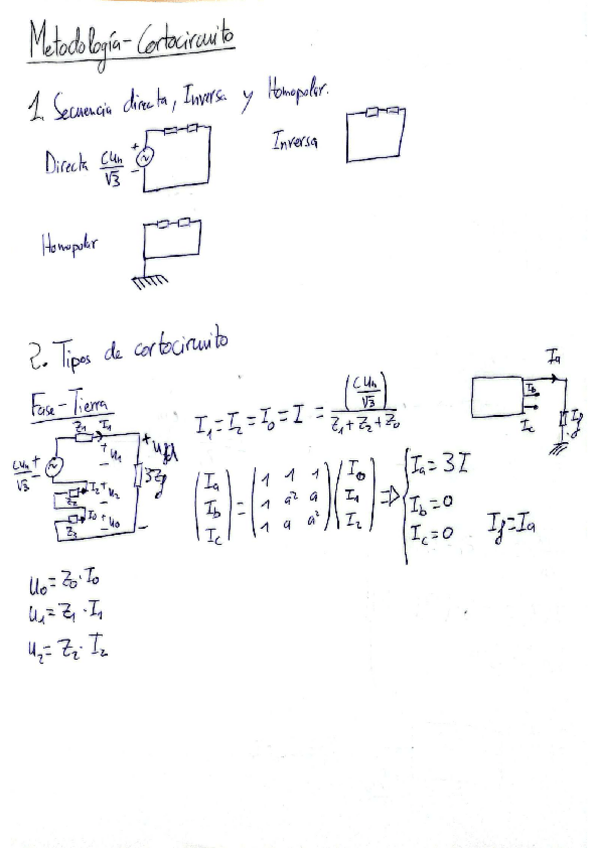 Metodología - Cortocircuito
1. Secuencia directa, Inversa y Homopolar.
Directa cUn/√3 + ~ -
Inversa
Homopolar
2. Tipos de cortocircuito
Fase-Tierra
cUn/√3 + - Z1 I1 + U1 - I2 + U2 - Z2 I0 + U0 - Z3 + 3Zf -
I1 = I2 = I0 = I = (cUn/√3) / (Z1 + Z2 + Z0)
Ia Ib Ic If
(Ia Ib Ic) = (1 1 1; 1 a² a; 1 a a²) (I0 I1 I2) => { Ia = 3I
Ib = 0
Ic = 0 If = Ia
U0 = Z0 · I0
U1 = Z1 · I1
U2 = Z2 · I2